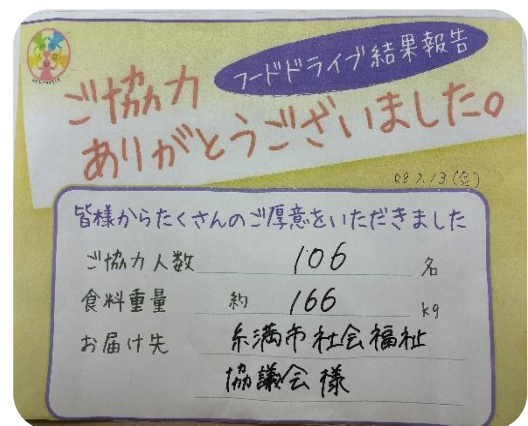 フードドライブ結果報告
ご協力
ありがとうございました。
R8.2.13(金)
皆様からたくさんのご厚意をいただきました
ご協力人数 106 名
食料重量 約 166 kg
お届け先 糸満市社会福祉
協議会様